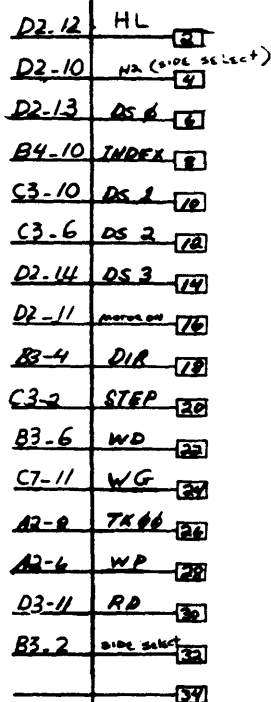 D2-12 HL 2
D2-10 H2 (side select) 4
D2-13 DS 0 6
B4-10 INDEX 8
C3-10 DS 1 10
C3-6 DS 2 12
D2-14 DS 3 14
D2-11 motor on 16
B3-4 DIR 18
C3-2 STEP 20
B3-6 WD 22
C7-11 WG 24
A2-8 TK 00 26
A2-6 WP 28
D3-11 RD 30
B3-2 side select 32
34